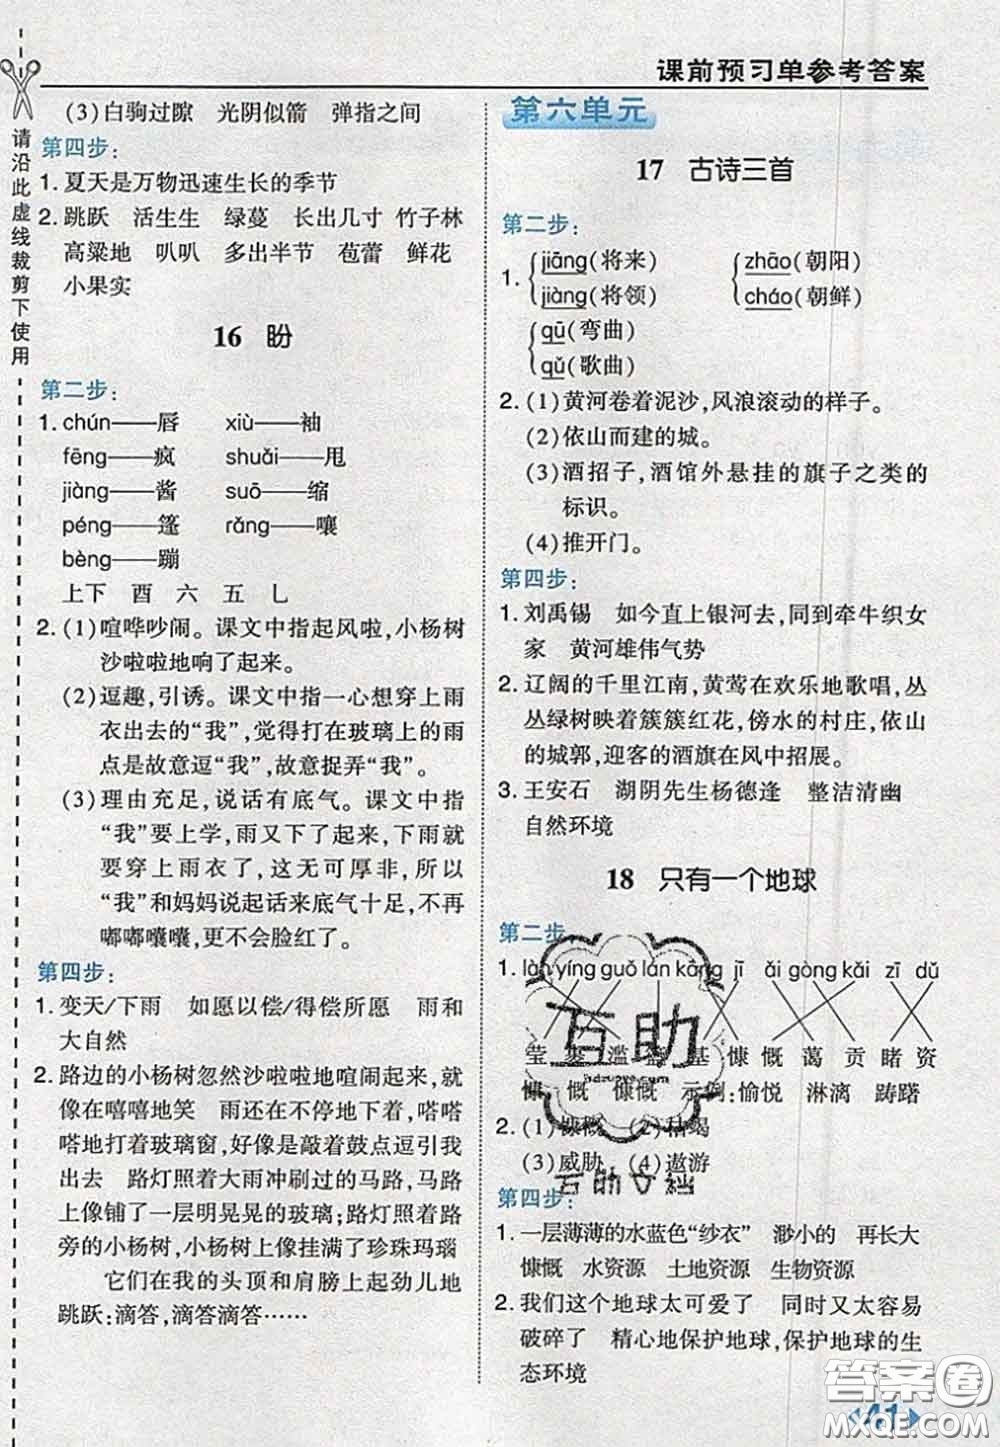 课前预习单参考答案
请沿此虚线裁剪下使用
(3)白驹过隙 光阴似箭 弹指之间
第四步:
1. 夏天是万物迅速生长的季节
2. 跳跃 活生生 绿蔓 长出几寸 竹子林
高粱地 叭叭 多出半节 苞蕾 鲜花
小果实
16 盼
第二步:
1. chún——唇 xiù——袖
fēng——疯 shuǎi——甩
jiàng——酱 suō——缩
péng——篷 rǎng——嚷
bèng——蹦
上下 酉 六 五 乚
2. (1)喧哗吵闹。课文中指起风啦,小杨树
沙啦啦地响了起来。
(2)逗趣,引诱。课文中指一心想穿上雨
衣出去的“我”,觉得打在玻璃上的雨
点是故意逗“我”,故意捉弄“我”。
(3)理由充足,说话有底气。课文中指
“我”要上学,雨又下了起来,下雨就
要穿上雨衣了,这无可厚非,所以
“我”和妈妈说起话来底气十足,不再
嘟嘟囔囔,更不会脸红了。
第四步:
1. 变天/下雨 如愿以偿/得偿所愿 雨和
大自然
2. 路边的小杨树忽然沙啦啦地喧闹起来,就
像在嘻嘻地笑 雨还在不停地下着,嗒嗒
嗒地打着玻璃窗,好像是敲着鼓点逗引我
出去 路灯照着大雨冲刷过的马路,马路
上像铺了一层明晃晃的玻璃;路灯照着路
旁的小杨树,小杨树上像挂满了珍珠玛瑙
它们在我的头顶和肩膀上起劲儿地
跳跃:滴答,滴答滴答……
第六单元
17 古诗三首
第二步:
1. jiāng(将来) zhāo(朝阳)
jiàng(将领) cháo(朝鲜)
qū(弯曲)
qǔ(歌曲)
2. (1)黄河卷着泥沙,风浪滚动的样子。
(2)依山而建的城。
(3)酒招子,酒馆外悬挂的旗子之类的
标识。
(4)推开门。
第四步:
1. 刘禹锡 如今直上银河去,同到牵牛织女
家 黄河雄伟气势
2. 辽阔的千里江南,黄莺在欢乐地歌唱,丛
丛绿树映着簇簇红花,傍水的村庄、依山
的城郭,迎客的酒旗在风中招展。
3. 王安石 湖阴先生杨德逢 整洁清幽
自然环境
18 只有一个地球
第二步:
1. làn yíng guǒ lán kāng jī ǎi gòng kǎi zī dǔ
莹 裹 滥 蓝 基 慷 慨 蔼 贡 睹 资
慷 慨 慷慨 示例:愉悦 淋漓 踌躇
2. (1)慷慨 (2)枯竭
(3)威胁 (4)遨游
第四步:
1. 一层薄薄的水蓝色“纱衣” 渺小的 再长大
慷慨 水资源 土地资源 生物资源
2. 我们这个地球太可爱了 同时又太容易
破碎了 精心地保护地球,保护地球的生
态环境
互助
互助文档
答案圈
MXQE.COM
41